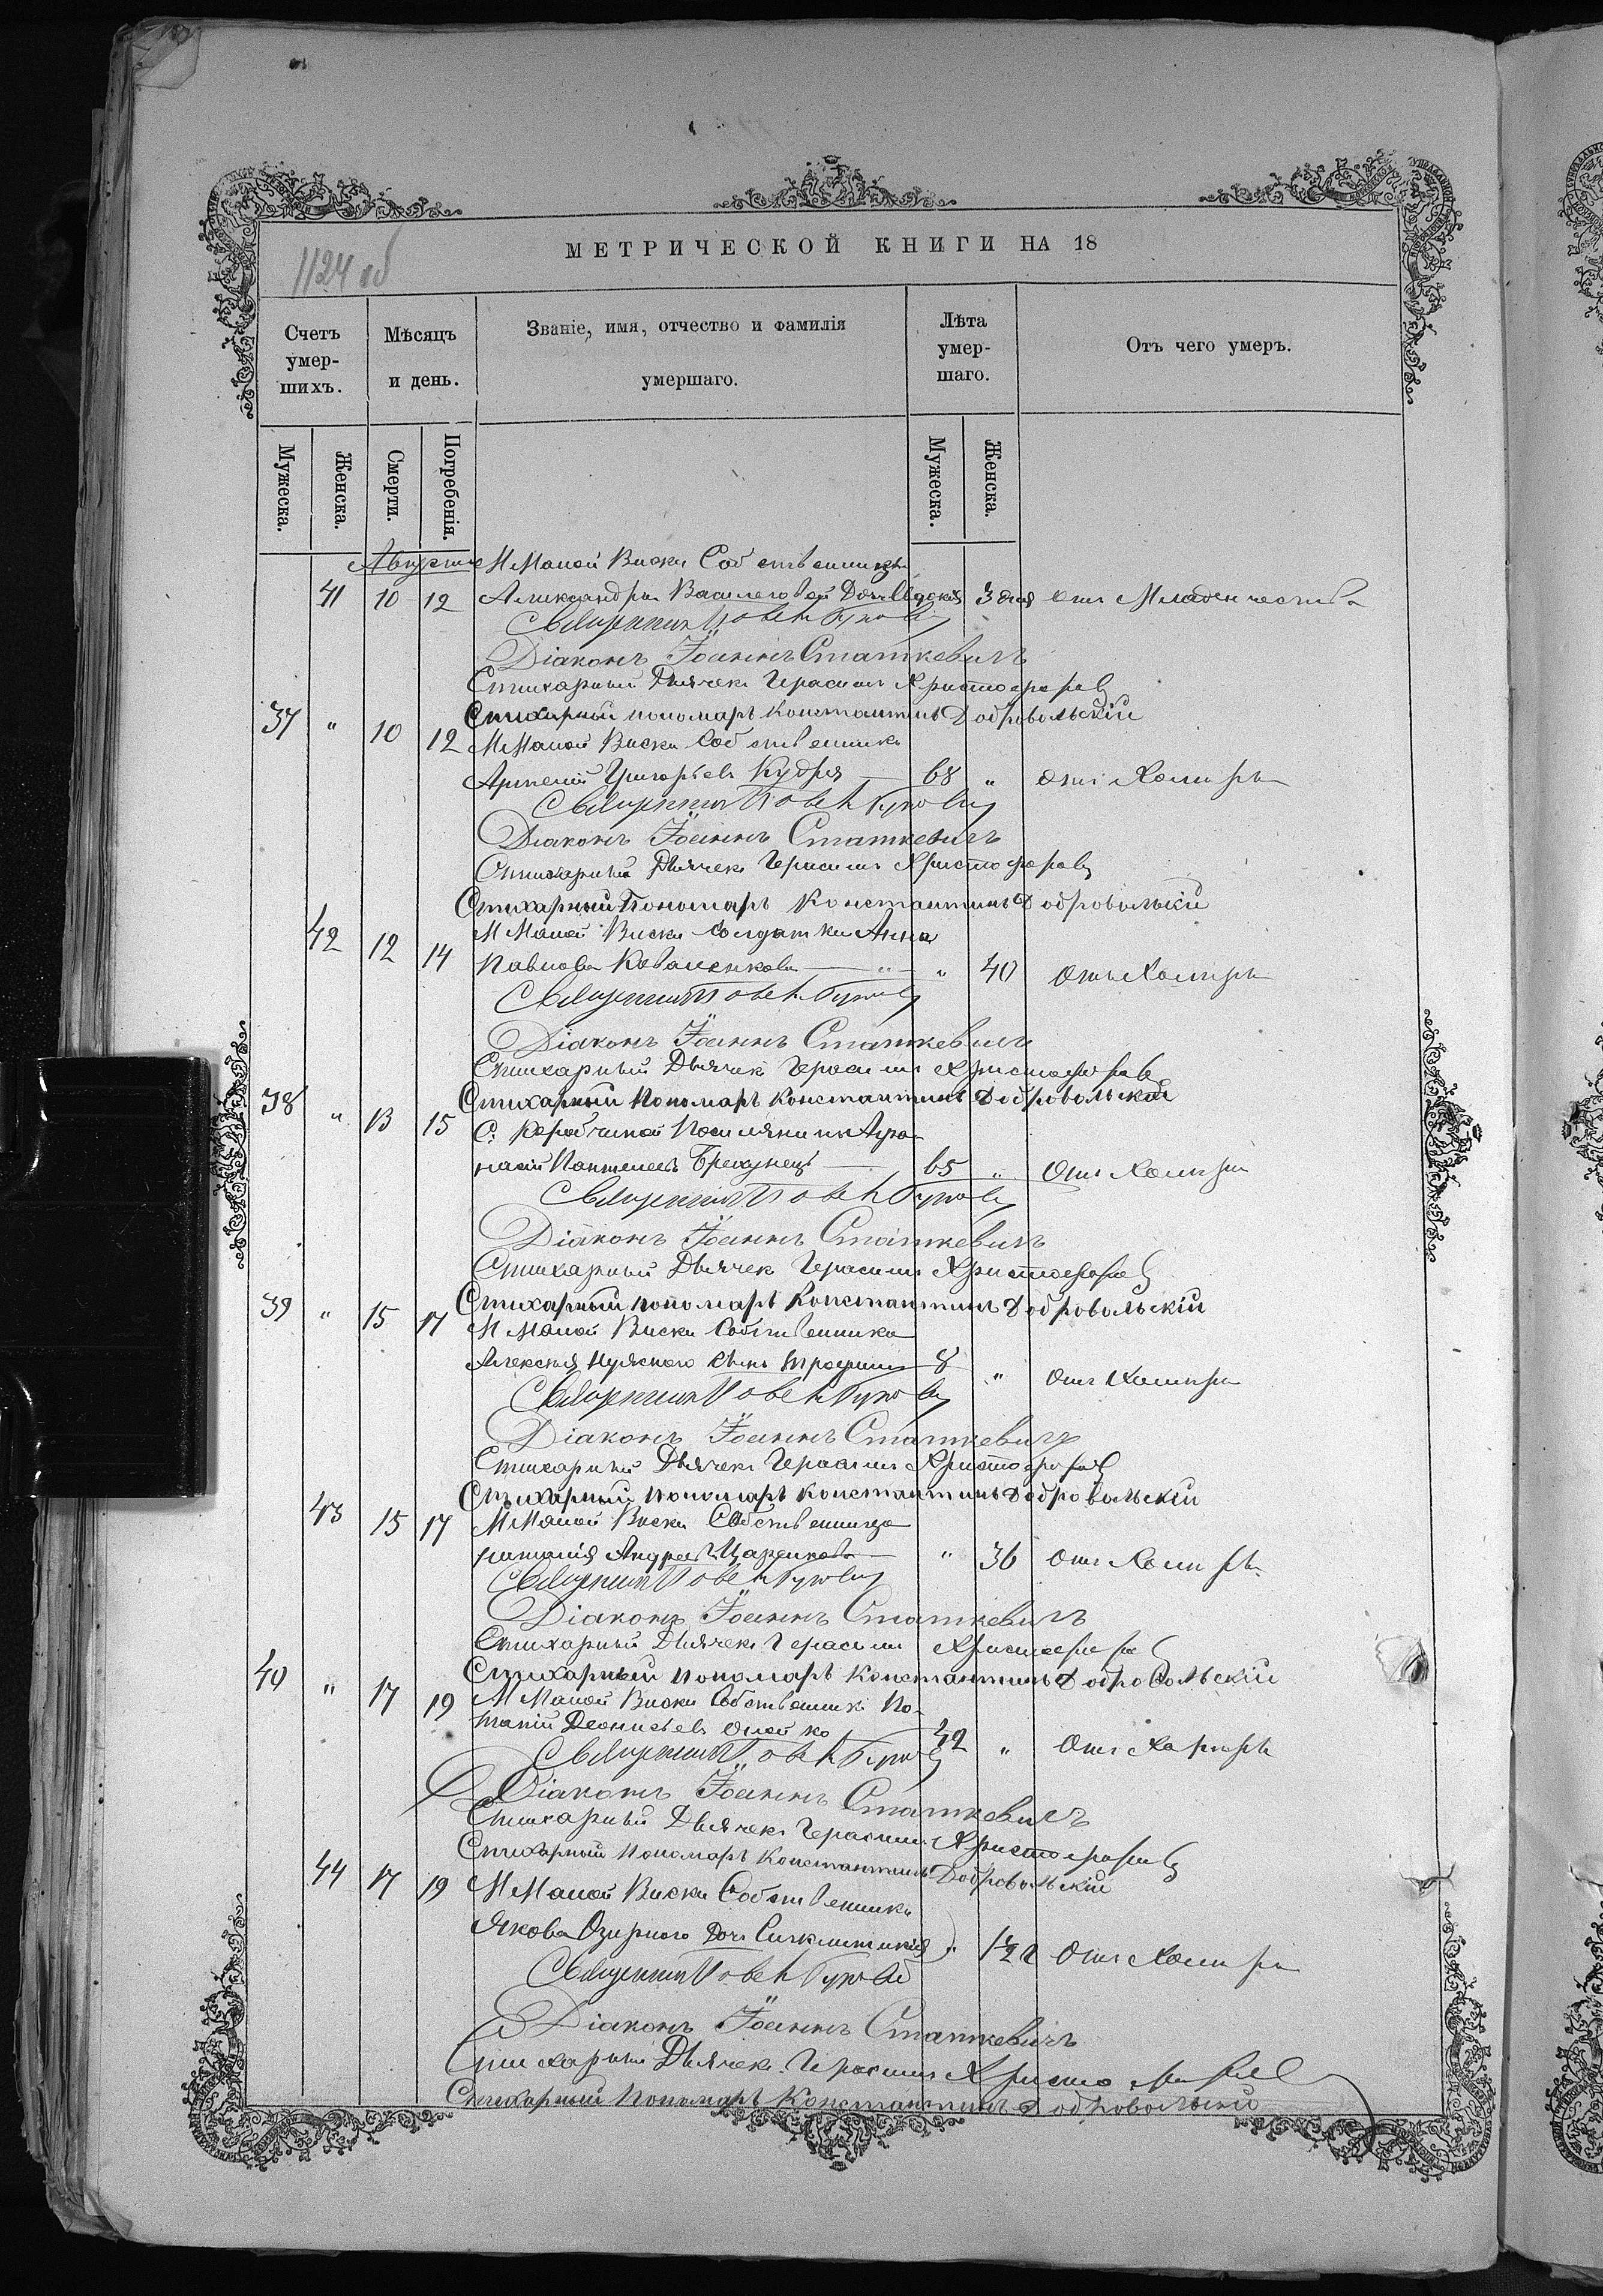 1124 об
МЕТРИЧЕСКОЙ КНИГИ НА 18
Счетъ умер-шихъ.
Мѣсяцъ и день.
Званіе, имя, отчество и фамилія умершаго.
Лѣта умер-шаго.
Отъ чего умеръ.
Мужеска.
Женска.
Смерти.
Погребенія.
Мужеска.
Женска.
Августа М Малой Виски Собственника
41 10 12 Александра Дочь 3 дня отъ Младенчества
Священникъ
Діаконъ Іоаннъ Статкевичъ
Стихарный Дьячекъ Герасимъ Христофоровъ
Стихарный пономарь Константинъ Добровольскій
37 " 10 12 М Малой Виски Собственникъ
Арсеній Григорьевъ Кудря 68 " отъ Холеры
Священникъ
Діаконъ Іоаннъ Статкевичъ
Стихарный Дьячекъ Герасимъ Христофоровъ
Стихарный Пономарь Константинъ Добровольскій
42 12 14 М Малой Виски Солдатка Анна
Павлова Коваленкова " " 40 Отъ Холеры
Священникъ
Діаконъ Іоаннъ Статкевичъ
Стихарный Дьячекъ Герасимъ Христофоровъ
Стихарный Пономарь Константинъ Добровольскій
38 " 13 15 С. Поселянинъ Афа-
насій 65 " Отъ Холеры
Священникъ
Діаконъ Іоаннъ Статкевичъ
Стихарный Дьячекъ Герасимъ Христофоровъ
Стихарный пономарь Константинъ Добровольскій
39 " 15 17 М Малой Виски Собственника
Алексея сынъ Трофимъ 8 " Отъ Холеры
Священникъ
Діаконъ Іоаннъ Статкевичъ
Стихарный Дьячекъ Герасимъ Христофоровъ
Стихарный пономарь Константинъ Добровольскій
43 15 17 М Малой Виски Собственница
Наталія Андреева Царенкова " 36 Отъ Холеры
Священникъ
Діаконъ Іоаннъ Статкевичъ
Стихарный Дьячекъ Герасимъ Христофоровъ
Стихарный пономарь Константинъ Добровольскій
40 " 17 19 М Малой Виски Собственникъ По-
тапій Деонисьевъ 42 " Отъ Холеры
Священникъ
Діаконъ Іоаннъ Статкевичъ
Стихарный Дьячекъ Герасимъ Христофоровъ
Стихарный пономарь Константинъ Добровольскій
44 17 19 М Малой Виски Собственника
Якова Озирного Дочь Синклитикія " 1½ Отъ Холеры
Священникъ
Діаконъ Іоаннъ Статкевичъ
Стихарный Дьячекъ Герасимъ Христофоровъ
Стихарный Пономарь Константинъ Добровольскій